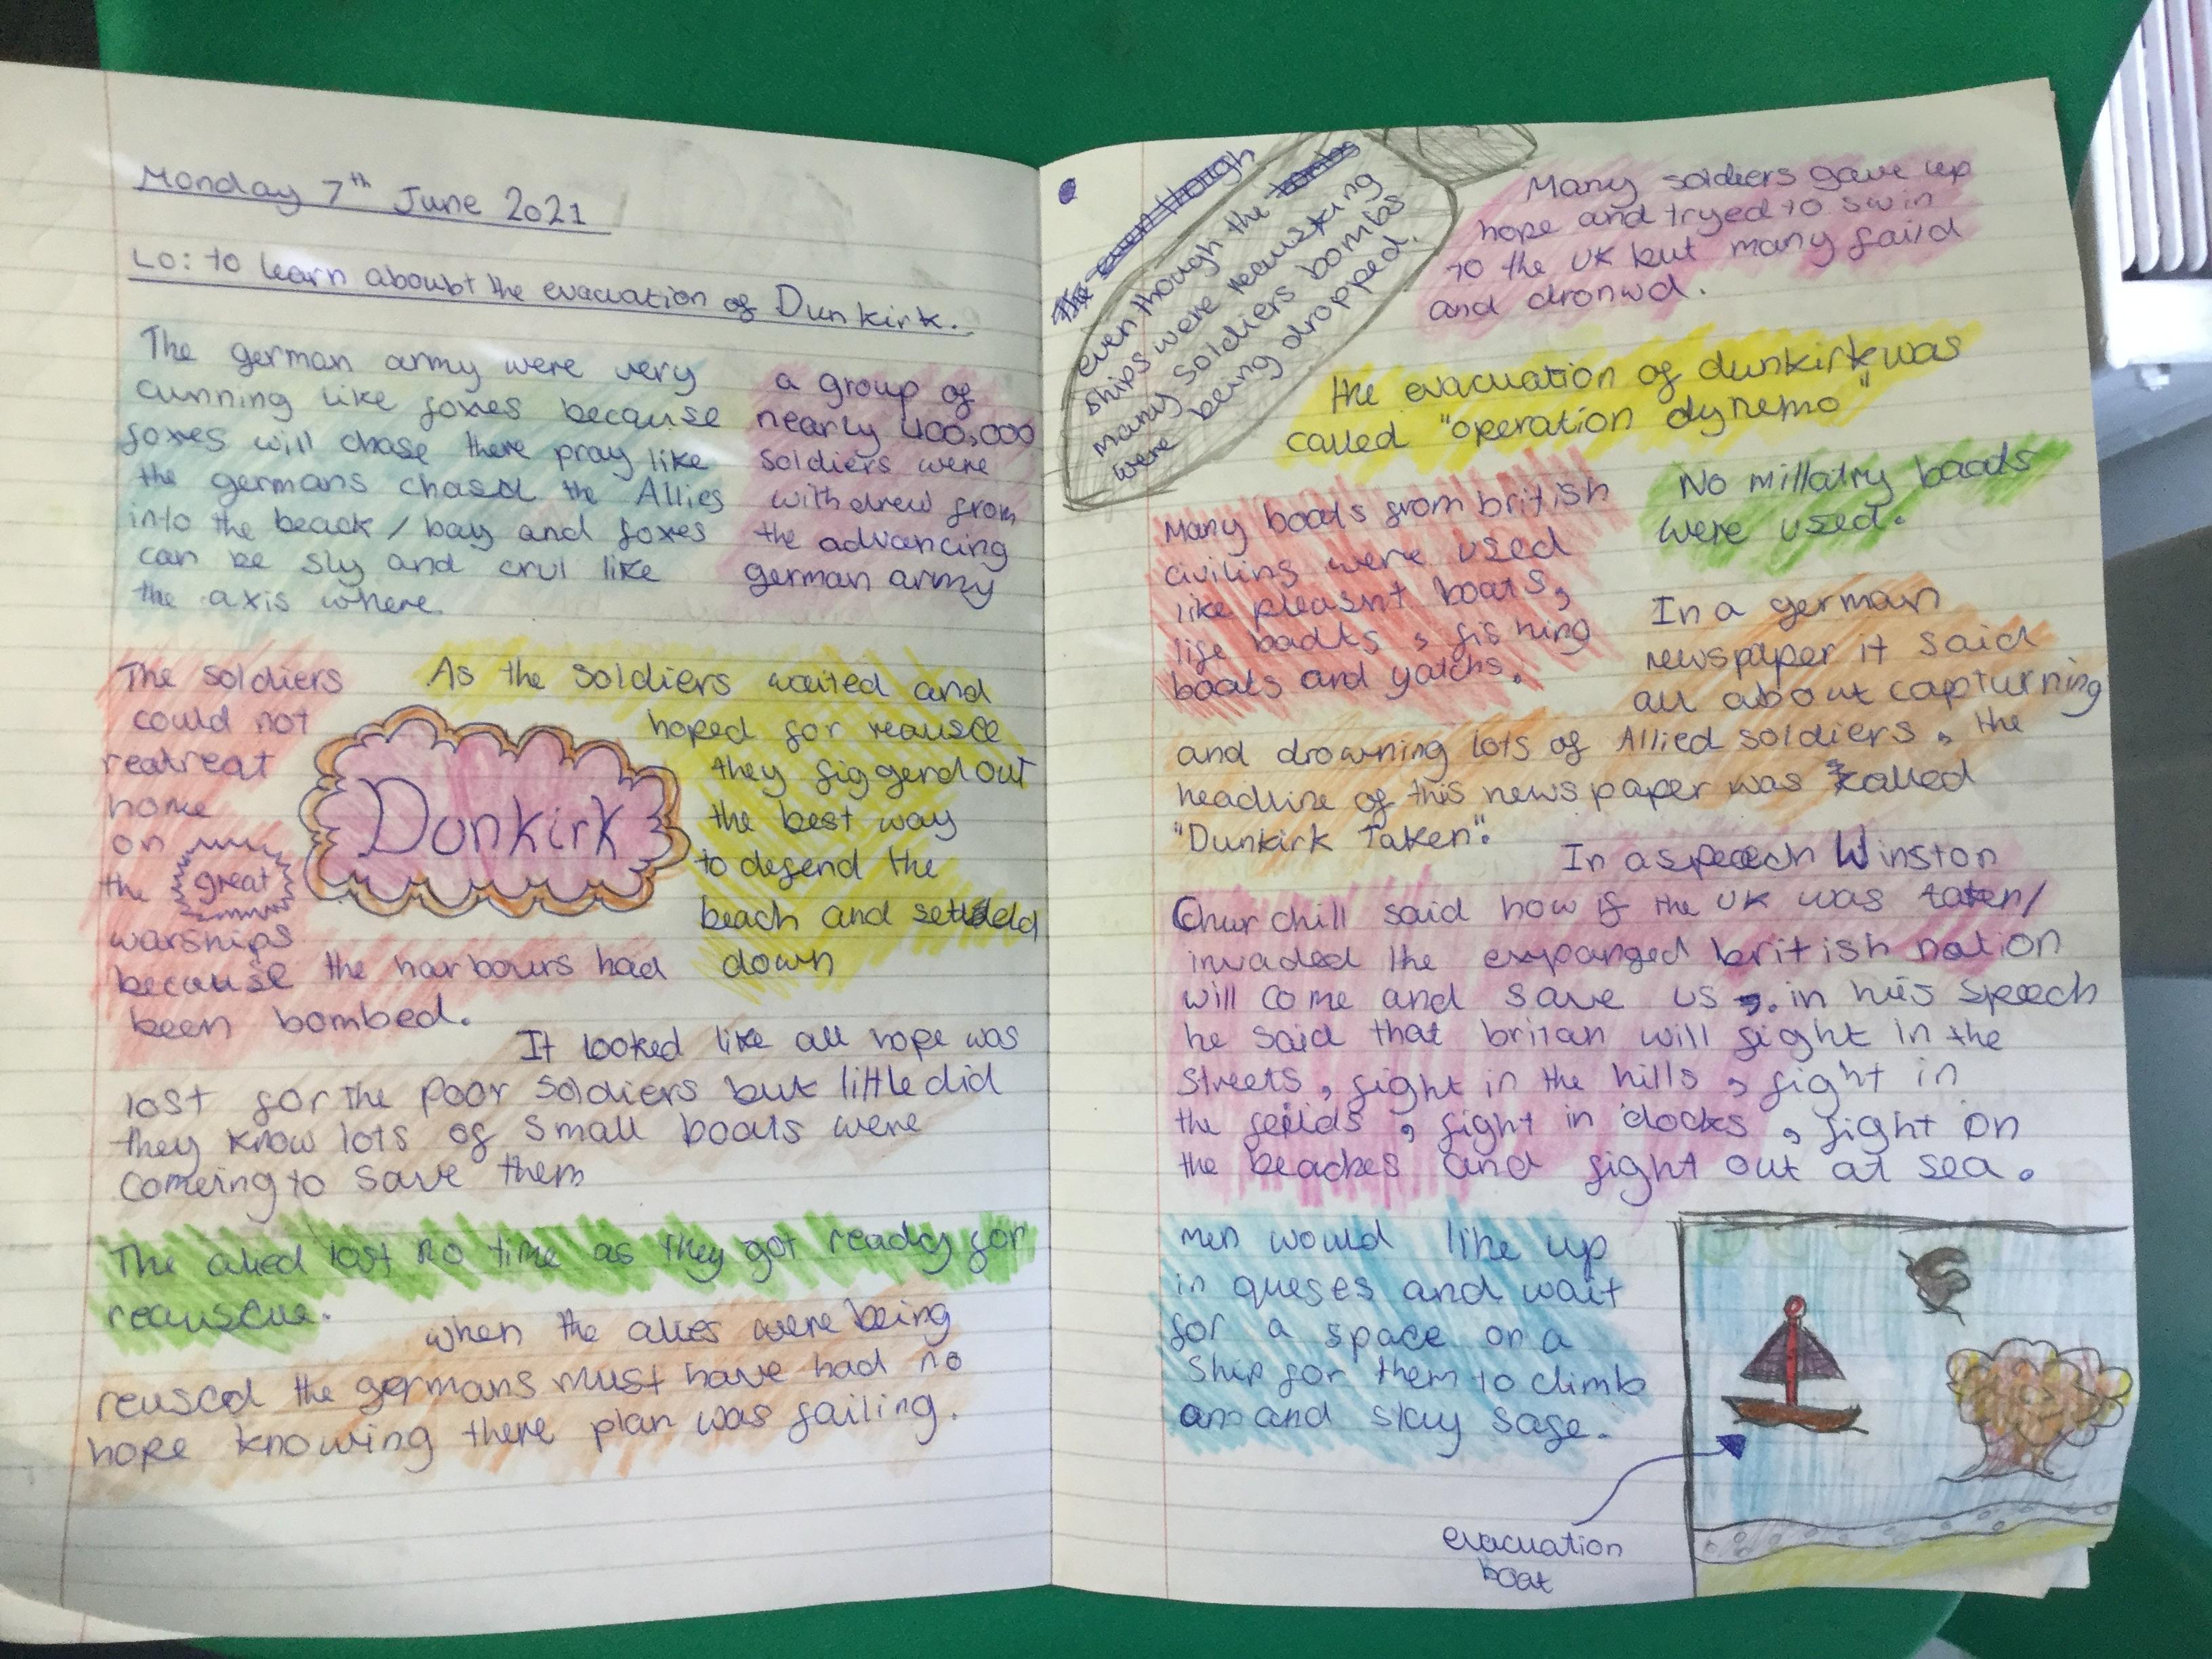 Monday 7th June 2021
LO: to learn aboubt the evacuation of Dunkirk.
The german army were very
cunning like foxes because
foxes will chase there pray like
the germans chasd the Allies
into the beack / bay and foxes
can be sly and crul like
the axis where.
a group of
nearly 400,000
soldiers were
with drew from
the advancing
german army
The soldiers
could not
reatreat
home
on
the great
warships
because the harbours had
been bombed.
Dunkirk
As the soldiers waited and
hoped for reausce
they figgerd out
the best way
to defend the
beach and
down
It looked like all hope was
lost for the poor soldiers but little did
they know lots of small boats were
comeing to save them
The alied lost no time as they got ready for
reauscue.
when the alies were being
reuscd the germans must have had no
hope knowing there plan was failing.
The even though
even though the bombs
ships were reausking
many soldiers bombs
were being dropped.
Many soldiers gave up
hope and tryed to swin
to the UK but many faild
and dronwd.
the evacuation of dunkirk was
called "operation dynemo"
Many boats from british
civilins were used
like pleasnt boats,
life boats, fishing
boats and yatchs.
No millatry boats
were used.
In a german
newspaper it said
all about capturning
and drowning lots of Allied soldiers, the
headline of this newspaper was called
"Dunkirk Taken".
In a speech Winston
Churchill said how if the UK was taken/
invaded the expanged british nation
will come and save us. in his speech
he said that britan will fight in the
streets, fight in the hills, fight in
the feilds, fight in docks, fight on
the beaches and fight out at sea.
men would like up
in queses and wait
for a space on a
ship for them to climb
and stay safe.
evacuation
boat